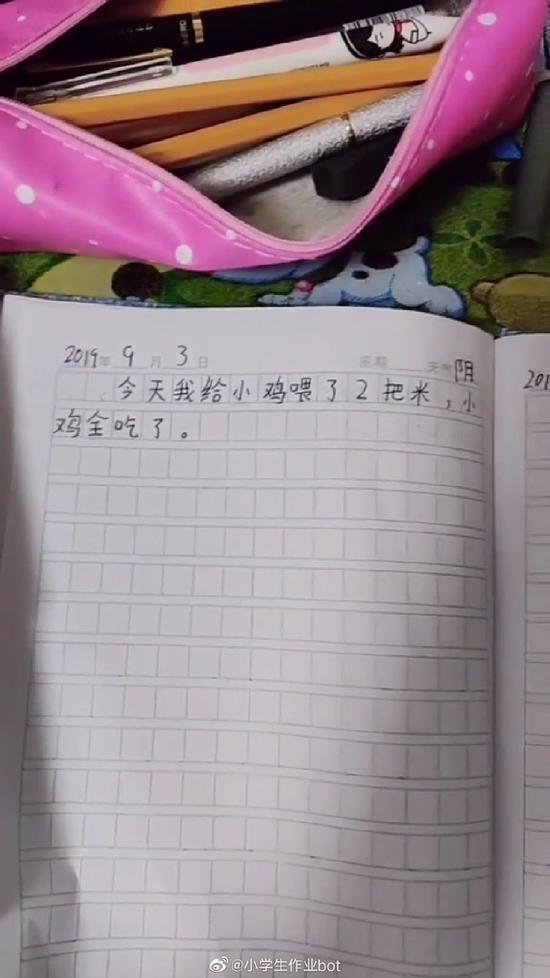 2019年 9月 3日 星期 天气 阴
今天我给小鸡喂了2把米,小
鸡全吃了。
201
@小学生作业bot